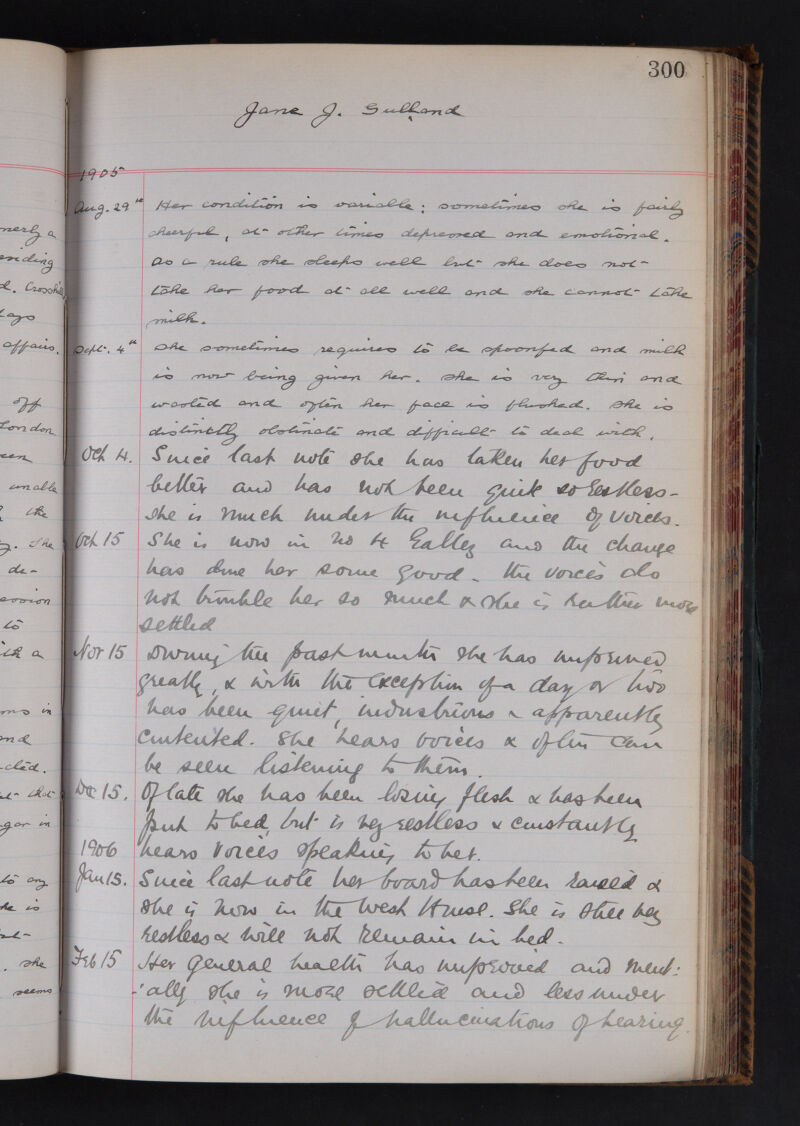 300
Jane J. Sulland
1905
Aug. 29th Her condition is variable: sometimes she is fairly
cheerful, at other times depressed and emotional.
As a rule she sleeps well but she does not
take her food at all well and she cannot take
milk.
Sept. 4th She sometimes requires to be spoonfed and milk
is now being given her. She is very thin and
wasted and often her face is flushed. She is
distinctly obstinate and difficult to deal with.
Oct 4. Since last note she has taken her food
better and has not been quite so restless -
she is much under the influence of voices.
Oct 15 She is now in No 4 Galley and the change
has done her some good - the voices do
not trouble her so much & she is rather more
settled
Nov 15 During the past month she has improved
greatly, & with the exception of a day or two
has been quiet, industrious & apparently
contented. She hears voices & often can
be seen listening to them.
Dec 15. Of late she has been losing flesh & has been
put to bed, but is very restless & constantly
hears voices speaking to her.
1906
Jan 15. Since last note her board has been raised &
she is now in the West House. She is still very
restless & will not remain in bed.
Feb 15 Her general health has improved and ment:
:ally she is more settled and less under
the influence of hallucinations of hearing.
nerly a
esiding
d. Crosshill
days
affairs.
off
London
een
unable
the
y. She
de-
ession
to
ith a
ms in
and
cted.
at that
gar in
to any
she is
. she
seems